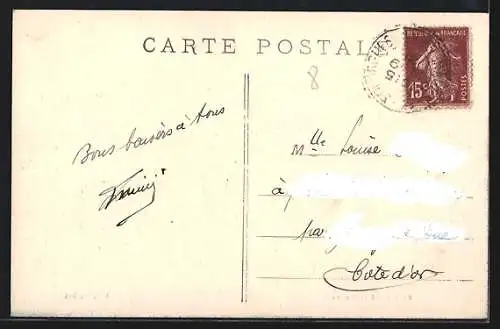 CARTE POSTALE
8
RÉPUBLIQUE FRANÇAISE
15c
POSTES
Bons baisers à tous
Mlle Louise
à
par
Côte d'or